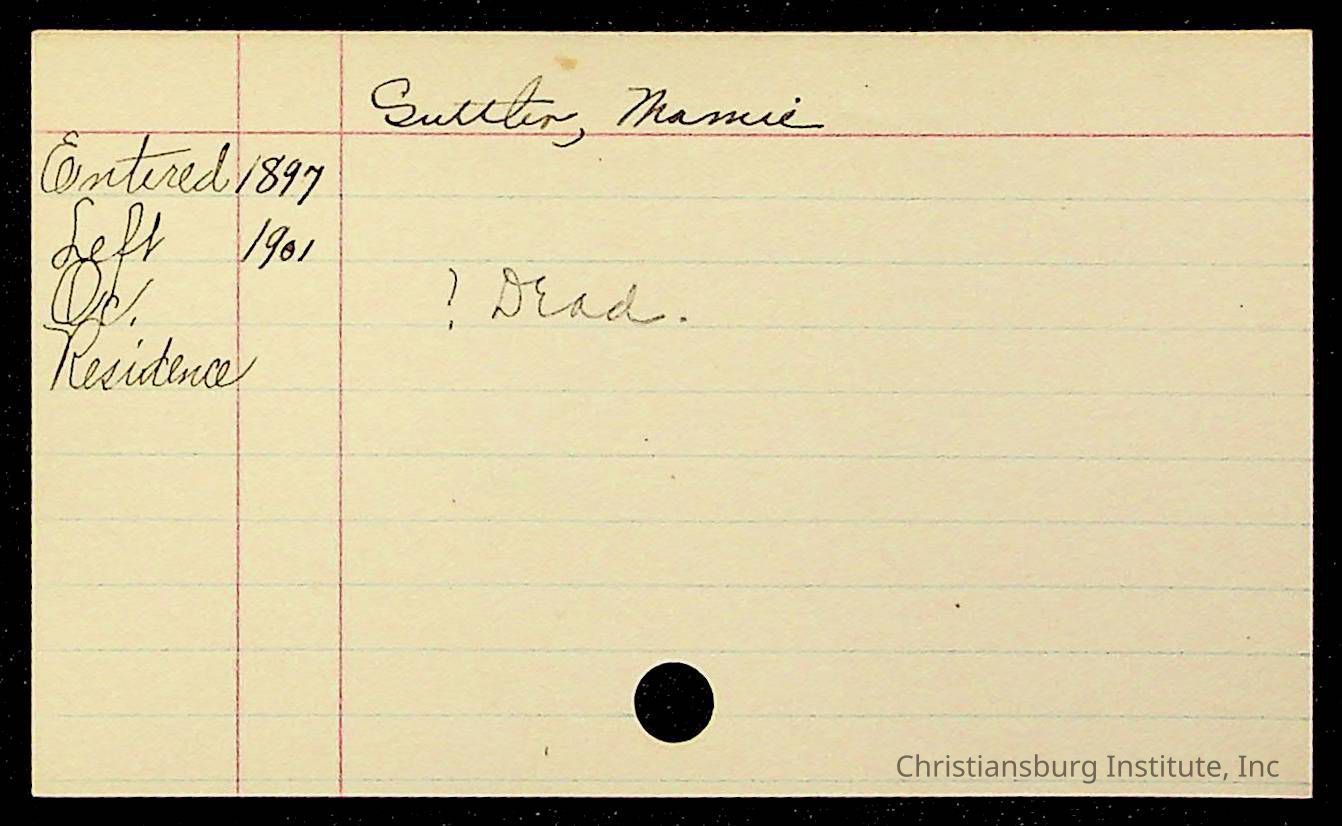 Suttler, Mamie
Entered 1897
Left 1901
Oc.
? Dead.
Residence
Christiansburg Institute, Inc